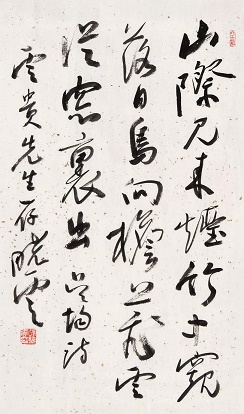 山際見來煙竹中窺
落日鳥向檐上飛雲
從窗裏出吳均詩
雲貴先生存曉雲